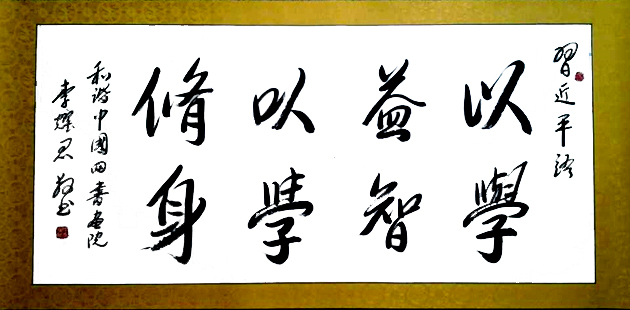 習近平語
以學
益智
以學
脩身
和諧中國四書畫院
李燦君敬书